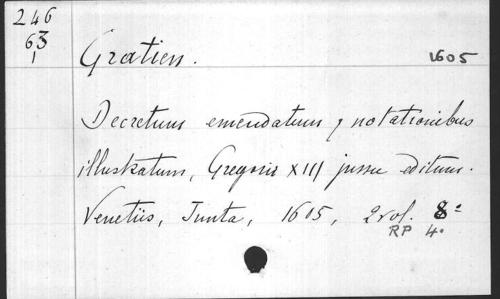 246
63
1
Gratien. 1605
Decretum emendatum, notationibus
illustratum, Gregorii XIII jussu editum.
Venetiis, Junta, 1605, 2 vol. 8º
RP 4º